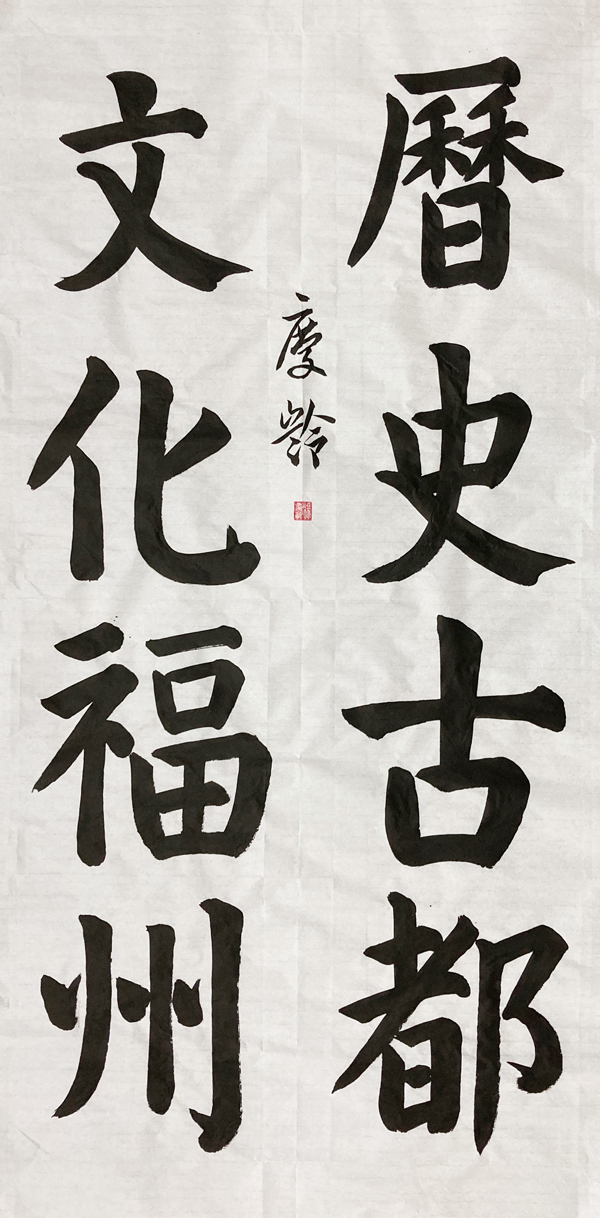 曆史古都
文化福州
慶齡